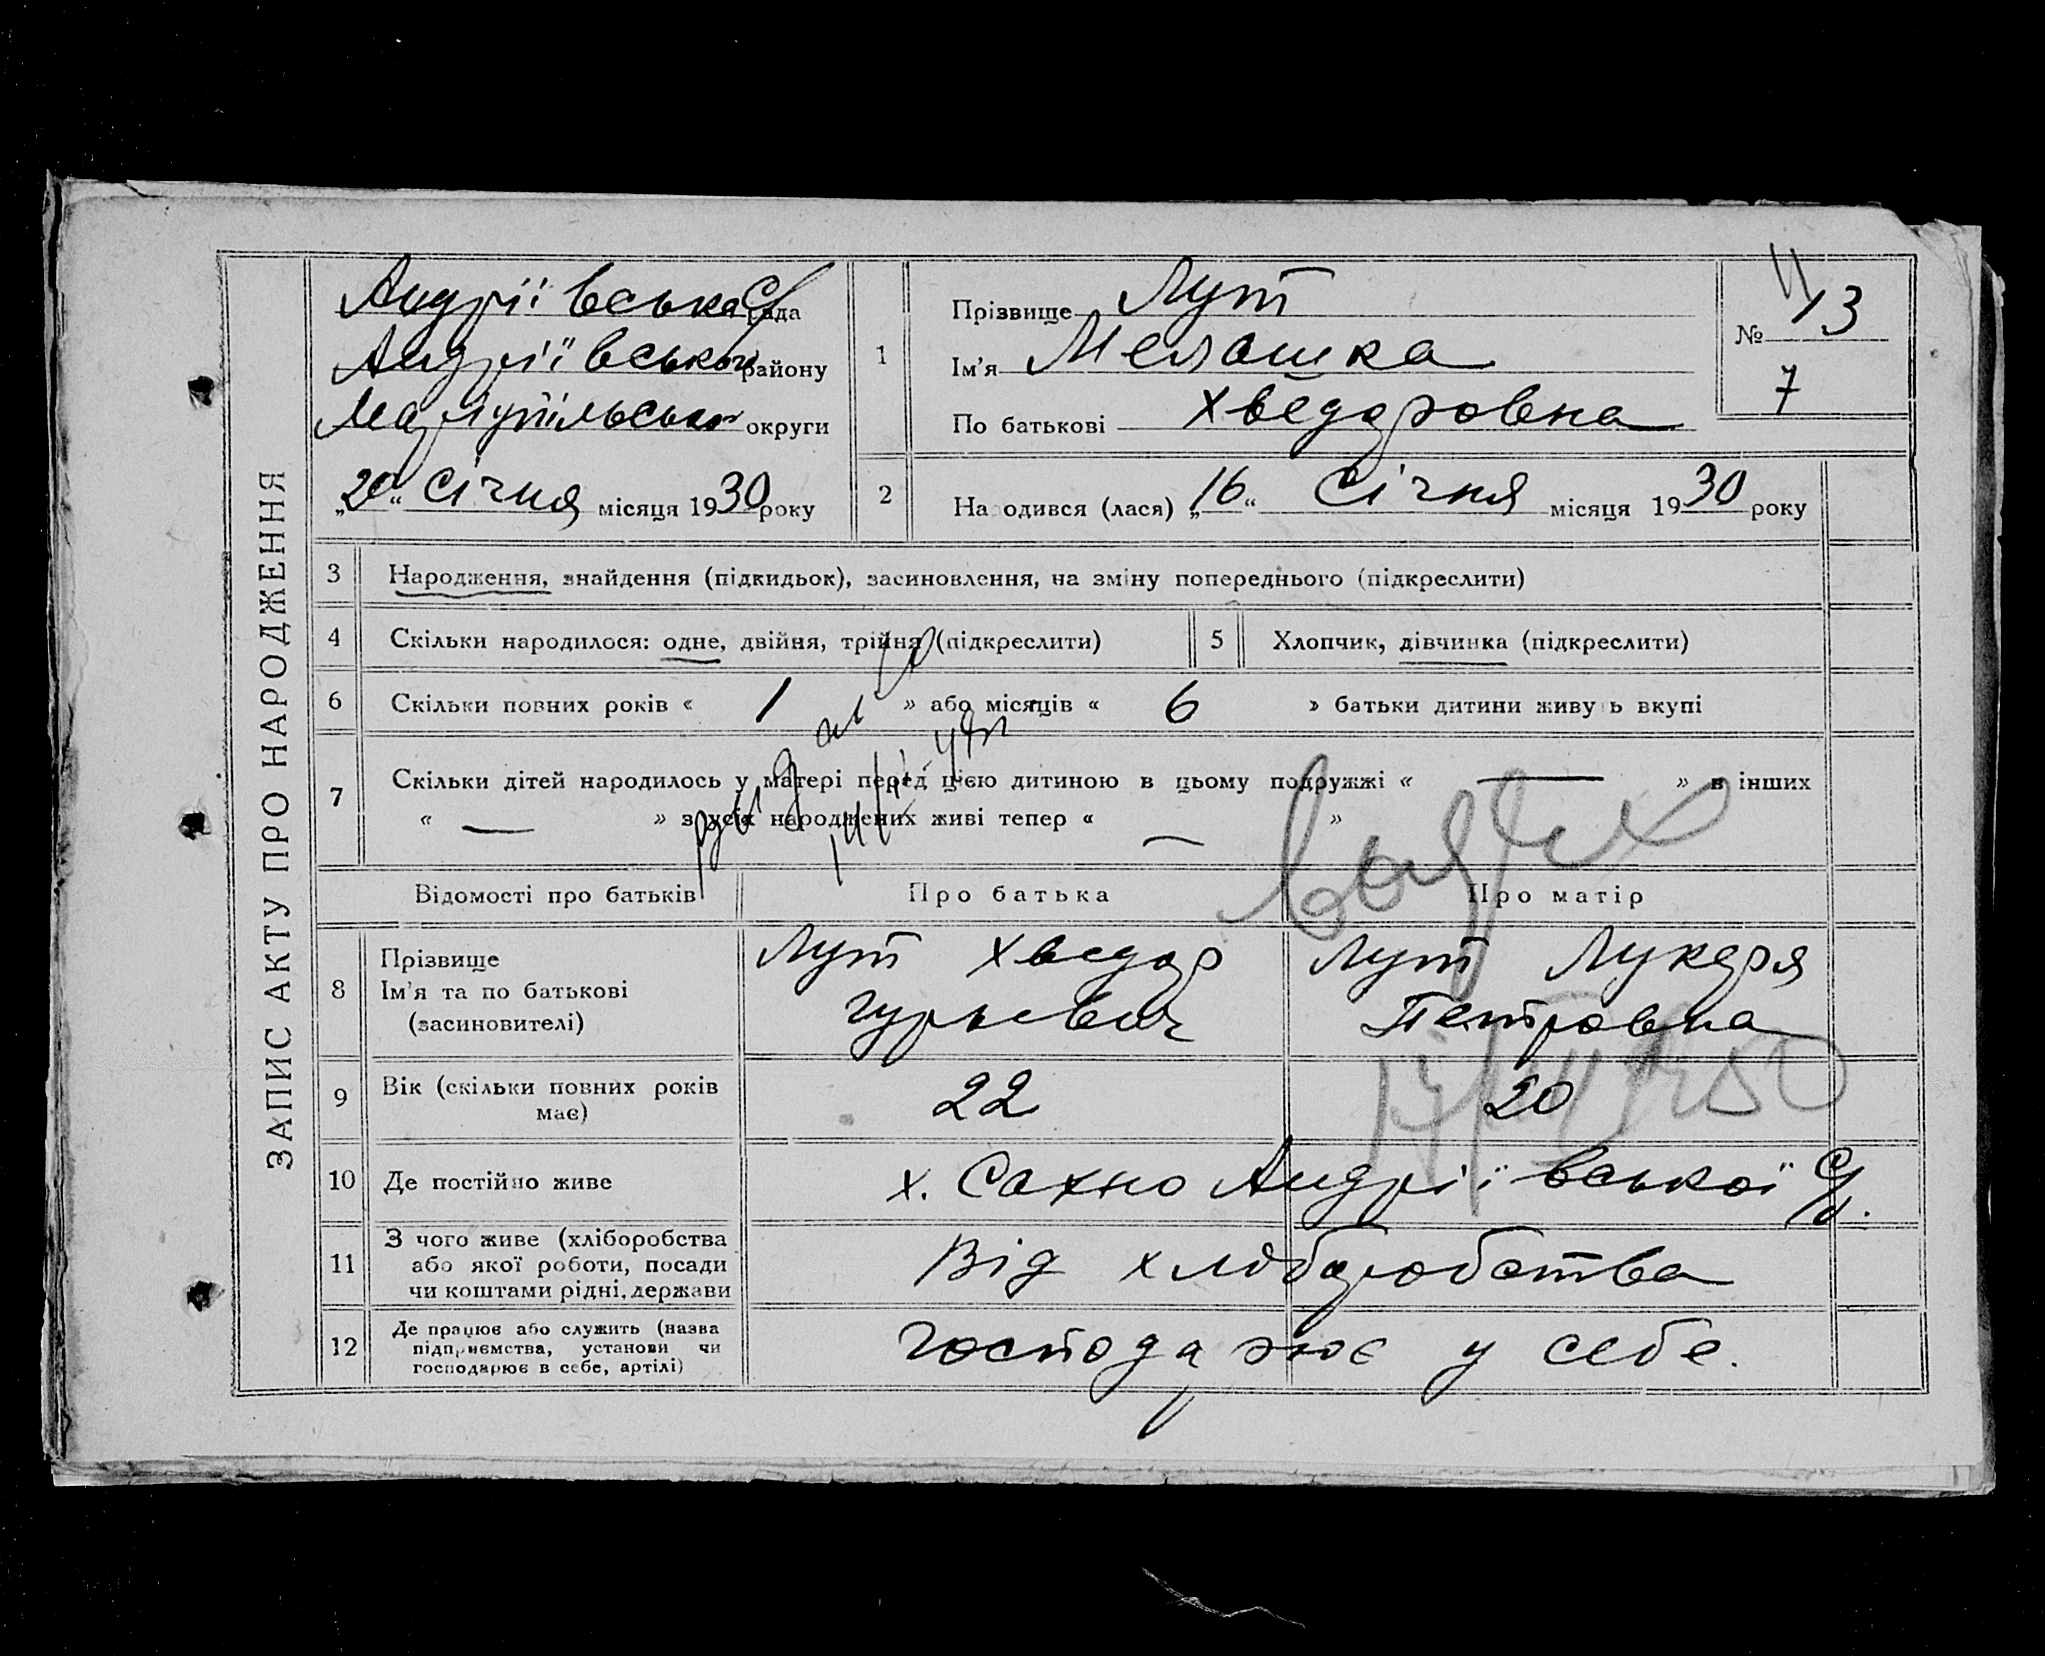 ЗАПИС АКТУ ПРО НАРОДЖЕННЯ
Андріївська С/рада
Андріївсько районy
Маріупільсько округи
„20“ Січня місяця 1930 року
1
Прізвище Лут
Ім'я Мелашка
По батькові Хведоровна
№ 13
7
2
Народився (лася) „16“ Січня місяця 1930 року
3 Народження, знайдення (підкидьок), засиновлення, на зміну попереднього (підкреслити)
4 Скільки народилося: одне, двійня, трійня (підкреслити)
5 Хлопчик, дівчинка (підкреслити)
6 Скільки повних років « 1 » або місяців « 6 » батьки дитини живуть вкупі
7 Скільки дітей народилось у матері перед цією дитиною в цьому подружжі « — » в інших
« — » з усіх народжених живі тепер « — »
Відомості про батьків
Про батька
Про матір
8 Прізвище
Ім'я та по батькові
(засиновителі)
Лут Хведор
Гурьевич
Лут Лукеря
Петровна
9 Вік (скільки повних років
має)
22
20
10 Де постійно живе
х. Сахно Андріївської С/р.
11 З чого живе (хліборобства
або якої роботи, посади
чи коштами рідні, держави
Від хліборобства
12 Де працює або служить (назва
підприємства, установи чи
господарює в себе, артілі)
Господарює у себе.